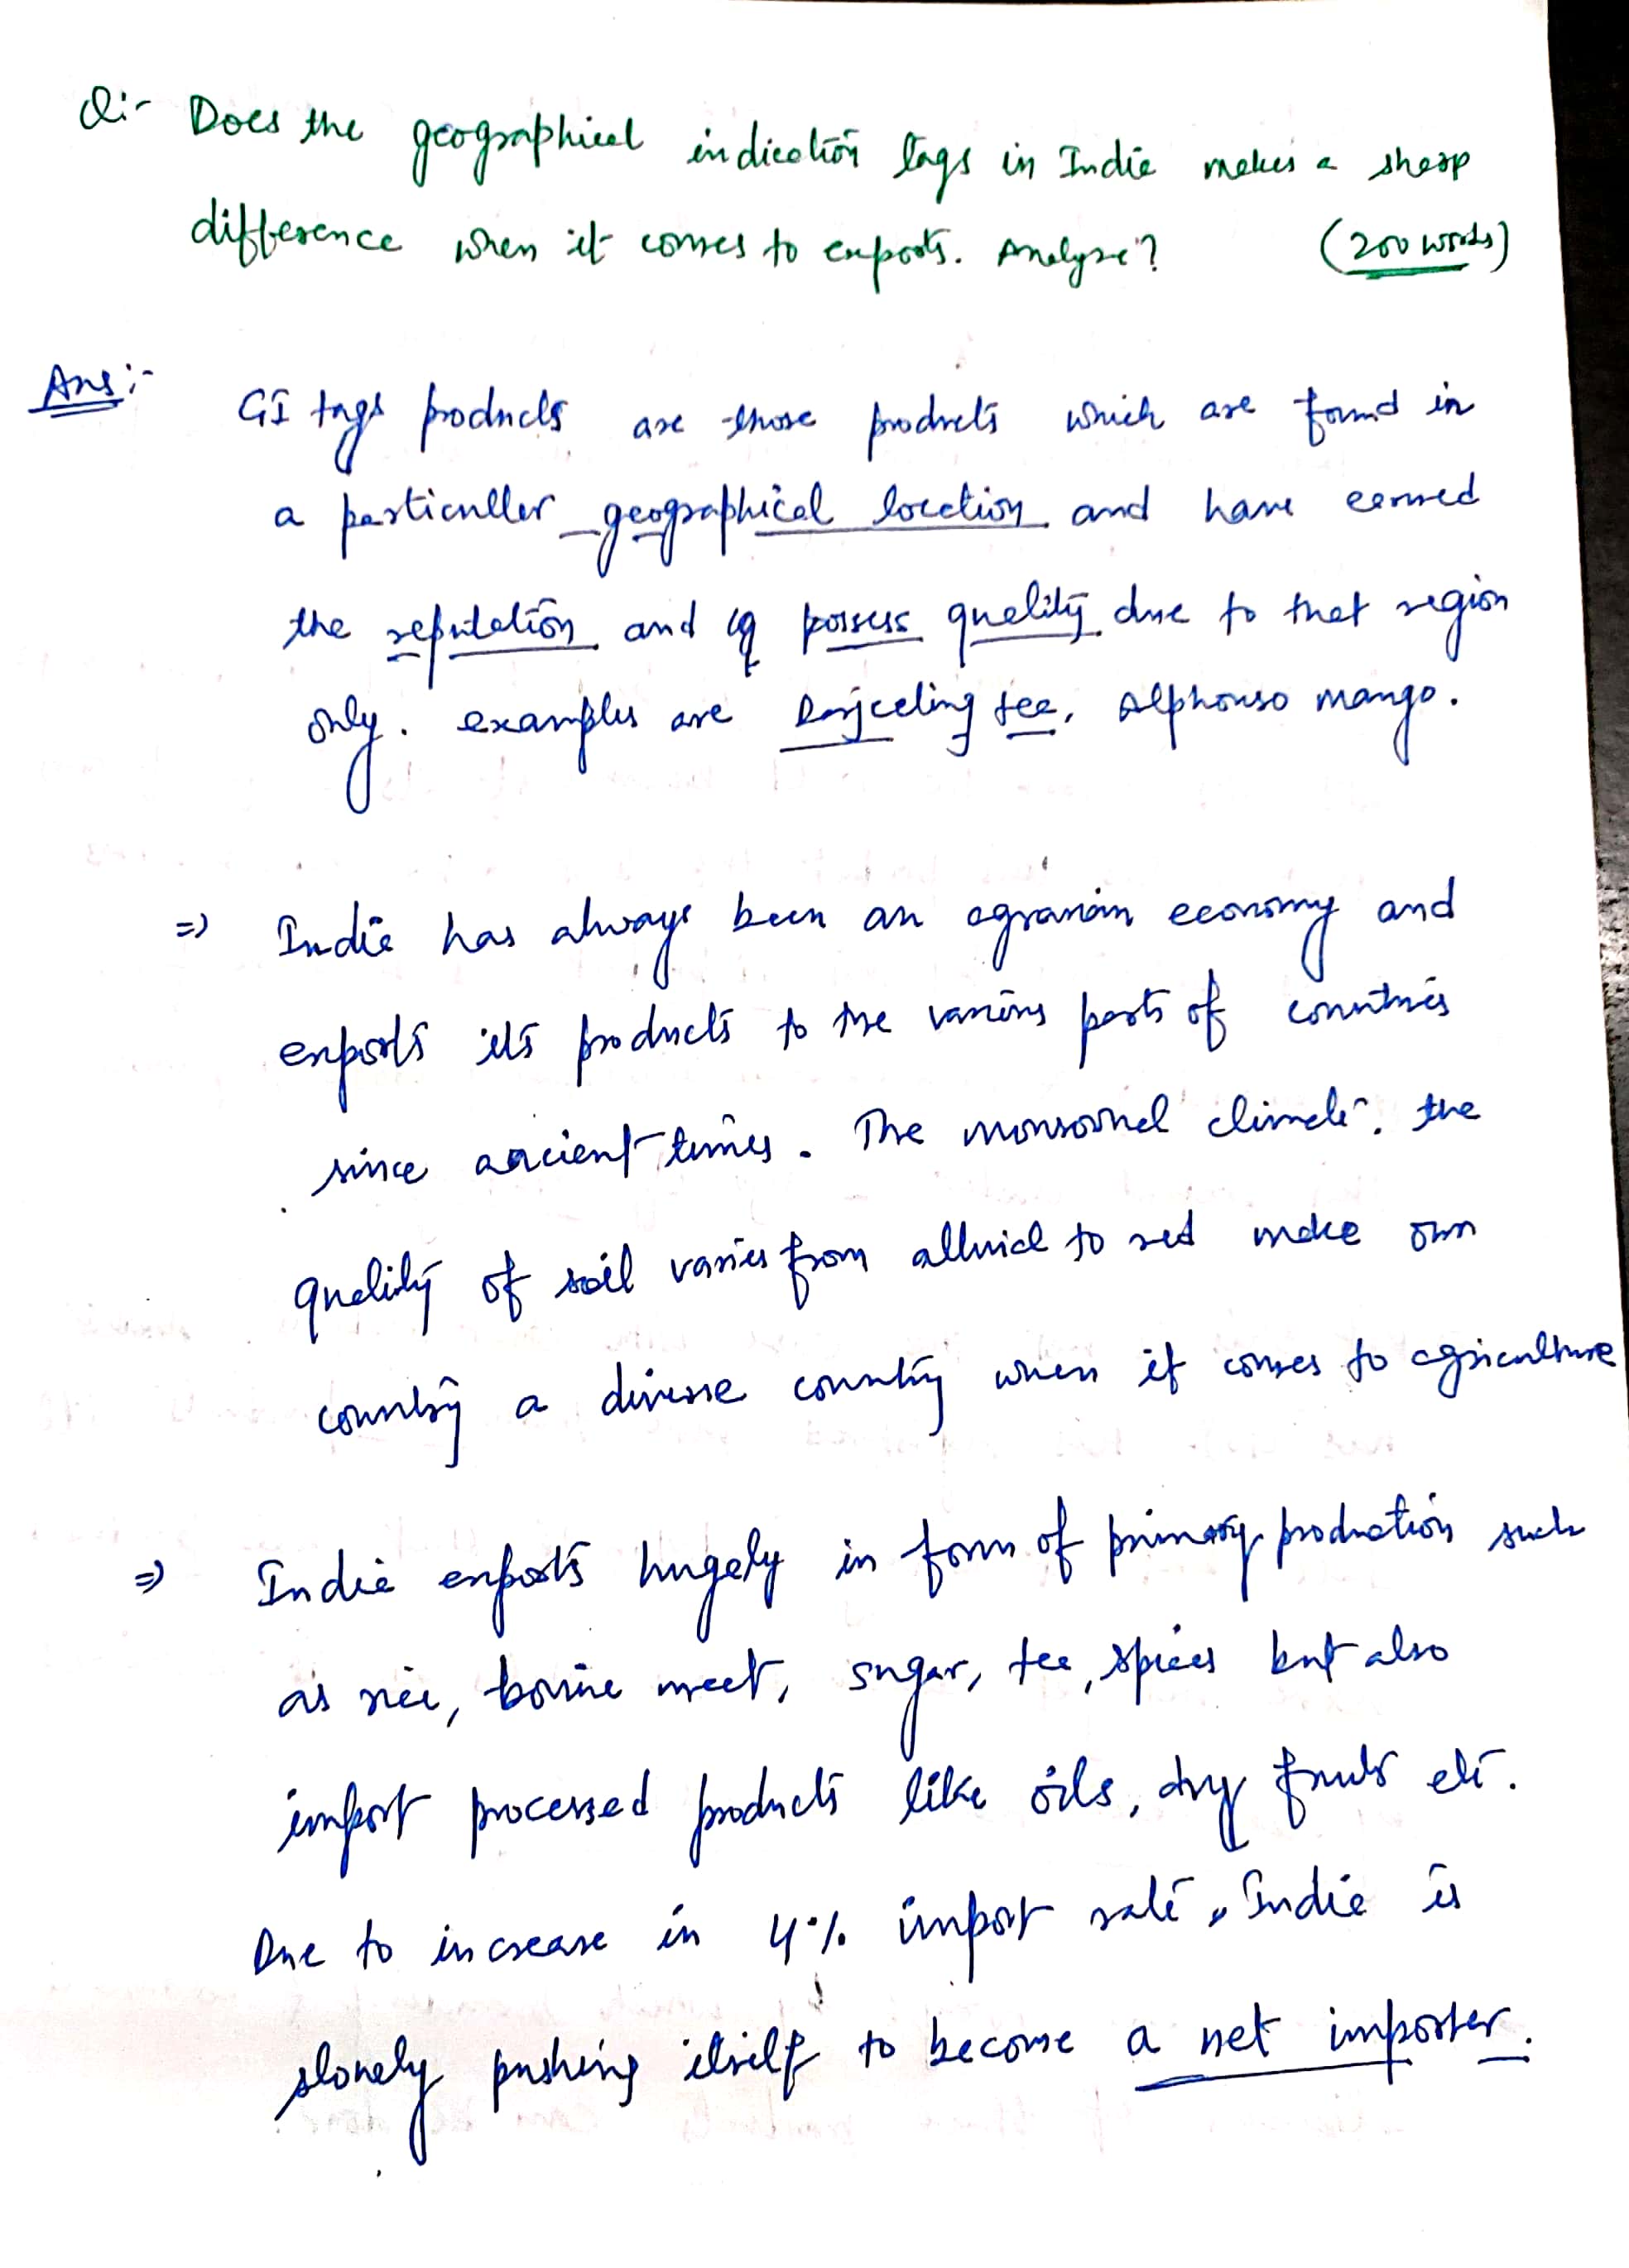 Q:- Does the geographical indication tags in India makes a sharp
difference when it comes to exports. Analyse? (200 words)
Ans:- GI tags products are those products which are found in
a particuller geographical location and have earned
the reputation and possess quality due to that region
only. examples are Darjeeling tea, Alphonso mango.
=> India has always been an agrarian economy and
exports its products to the various parts of countries
since ancient times. The monsoonal climate, the
quality of soil varies from alluvial to red make own
country a diverse country when it comes to agriculture
=> India exports hugely in form of primary production such
as rice, bovine meat, sugar, tea, spices but also
import processed products like oils, dry fruits etc.
Due to increase in 4% import rate, India is
slowely pushing itself to become a net importer.